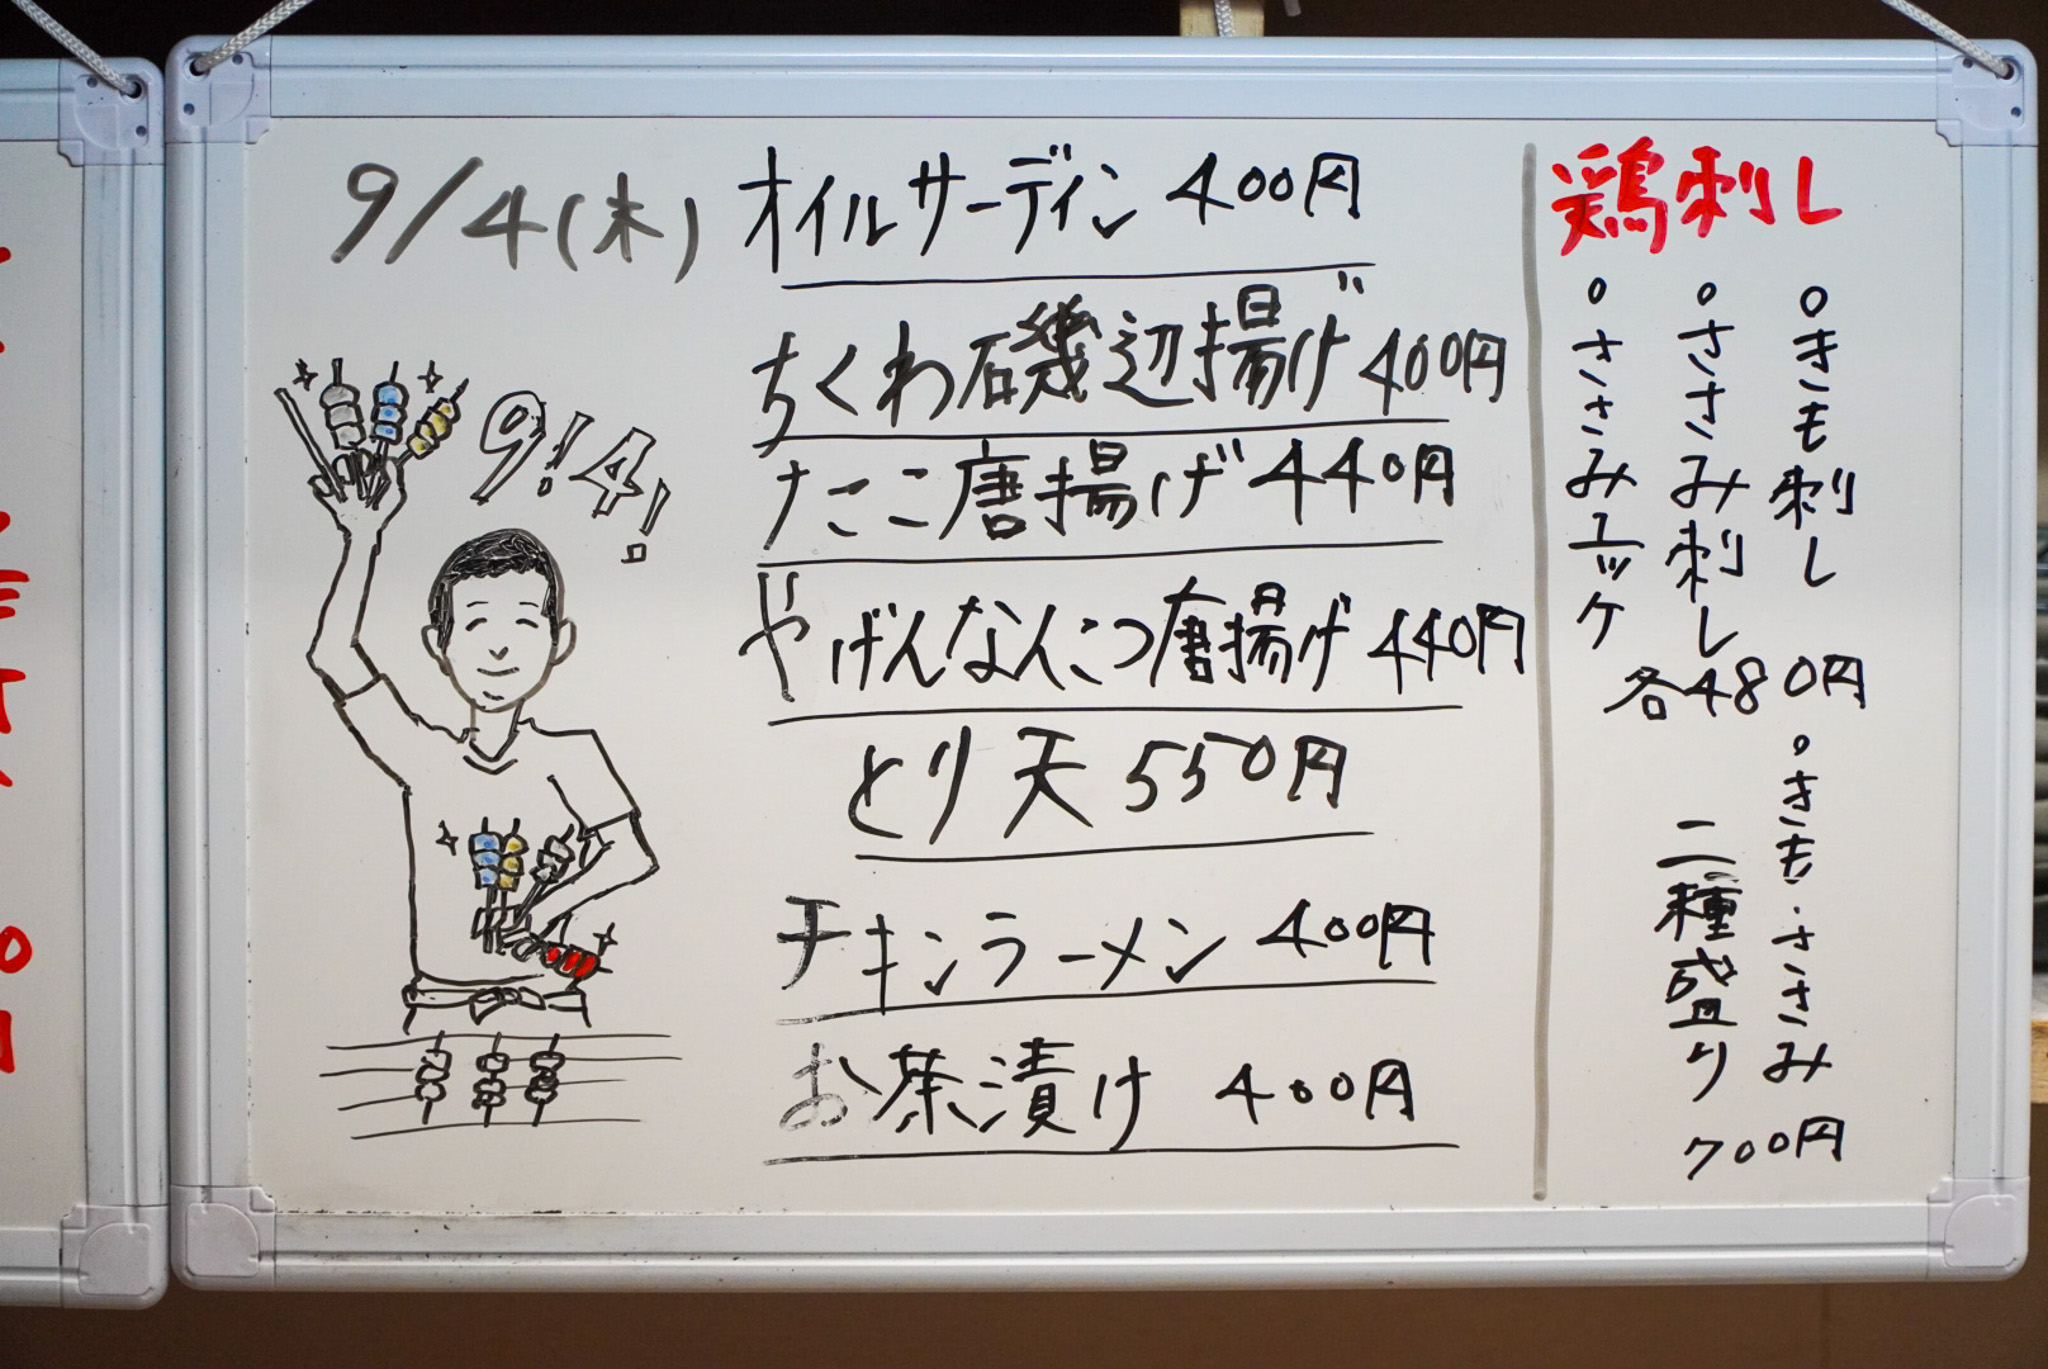 9/4(木)
9!4!
オイルサーディン 400円
ちくわ磯辺揚げ 400円
たこ唐揚げ 440円
やげんなんこつ唐揚げ 440円
とり天 550円
チキンラーメン 400円
お茶漬け 400円
鶏刺し
。きも刺し
。ささみ刺し
。ささみユッケ
各480円
。きも・ささみ
二種盛り
700円